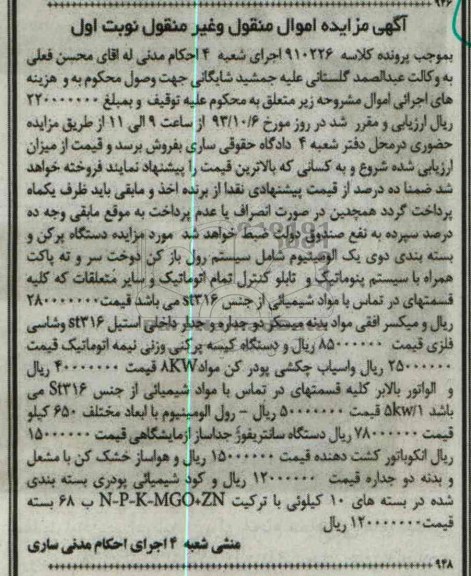 ۹۴۶
آگهی مزایده اموال منقول وغیر منقول نوبت اول
بموجب پرونده کلاسه ۹۱۰۲۲۶ اجرای شعبه ۴ احکام مدنی له اقای محسن فعلی
به وکالت عبدالصمد گلستانی علیه جمشید شایگانی جهت وصول محکوم به و هزینه
های اجرائی اموال مشروحه زیر متعلق به محکوم علیه توقیف و بمبلغ ۲۲۰۰۰۰۰۰۰۰
ریال ارزیابی و مقرر شد در روز مورخ ۹۳/۱۰/۶ از ساعت ۹ الی ۱۱ از طریق مزایده
حضوری درمحل دفتر شعبه ۴ دادگاه حقوقی ساری بفروش برسد و قیمت از میزان
ارزیابی شده شروع و به کسانی که بالاترین قیمت را پیشنهاد نمایند فروخته خواهد
شد ضمنا ده درصد از قیمت پیشنهادی نقدا از برنده اخذ و مابقی باید ظرف یکماه
پرداخت گردد همچنین در صورت انصراف یا عدم پرداخت به موقع مابقی وجه ده
درصد سپرده به نفع صندوق دولت ضبط خواهد شد مورد مزایده دستگاه پرکن و
بسته بندی دوی پک الومینیوم شامل سیستم رول باز کن دوخت سر و ته پاکت
همراه با سیستم پنوماتیک و تابلو کنترل تمام اتوماتیک و سایر متعلقات که کلیه
قسمتهای در تماس با مواد شیمیائی از جنس st۳۱۶ می باشد قیمت۲۸۰۰۰۰۰۰۰
ریال و میکسر افقی مواد بدنه میسکر دو جداره و جدار داخلی استیل st۳۱۶ وشاسی
فلزی قیمت ۸۵۰۰۰۰۰۰ ریال و دستگاه کیسه پرکنی وزنی نیمه اتوماتیک قیمت
۲۵۰۰۰۰۰۰ ریال واسیاب چکشی پودر کن مواد۸KW قیمت ۴۰۰۰۰۰۰۰ ریال
و الواتور بالابر کلیه قسمتهای در تماس با مواد شیمیائی از جنس St۳۱۶ می
باشد ۵kw/۱ قیمت ۵۰۰۰۰۰۰۰ ریال - رول الومینیوم با ابعاد مختلف ۶۵۰ کیلو
قیمت ۷۸۰۰۰۰۰۰ ریال دستگاه سانتریفوژ جداساز ازمایشگاهی قیمت ۱۵۰۰۰۰۰۰
ریال انکوباتور کشت دهنده قیمت ۱۵۰۰۰۰۰۰ ریال و هواساز خشک کن با مشعل
و بدنه دو جداره قیمت ۱۲۰۰۰۰۰۰ ریال و کود شیمیائی پودری بسته بندی
شده در بسته های ۱۰ کیلوئی با ترکیت N-P-K-MGO+ZN ب ۶۸ بسته
قیمت۱۲۰۰۰۰۰۰۰ ریال
منشی شعبه ۴ اجرای احکام مدنی ساری
۹۴۸